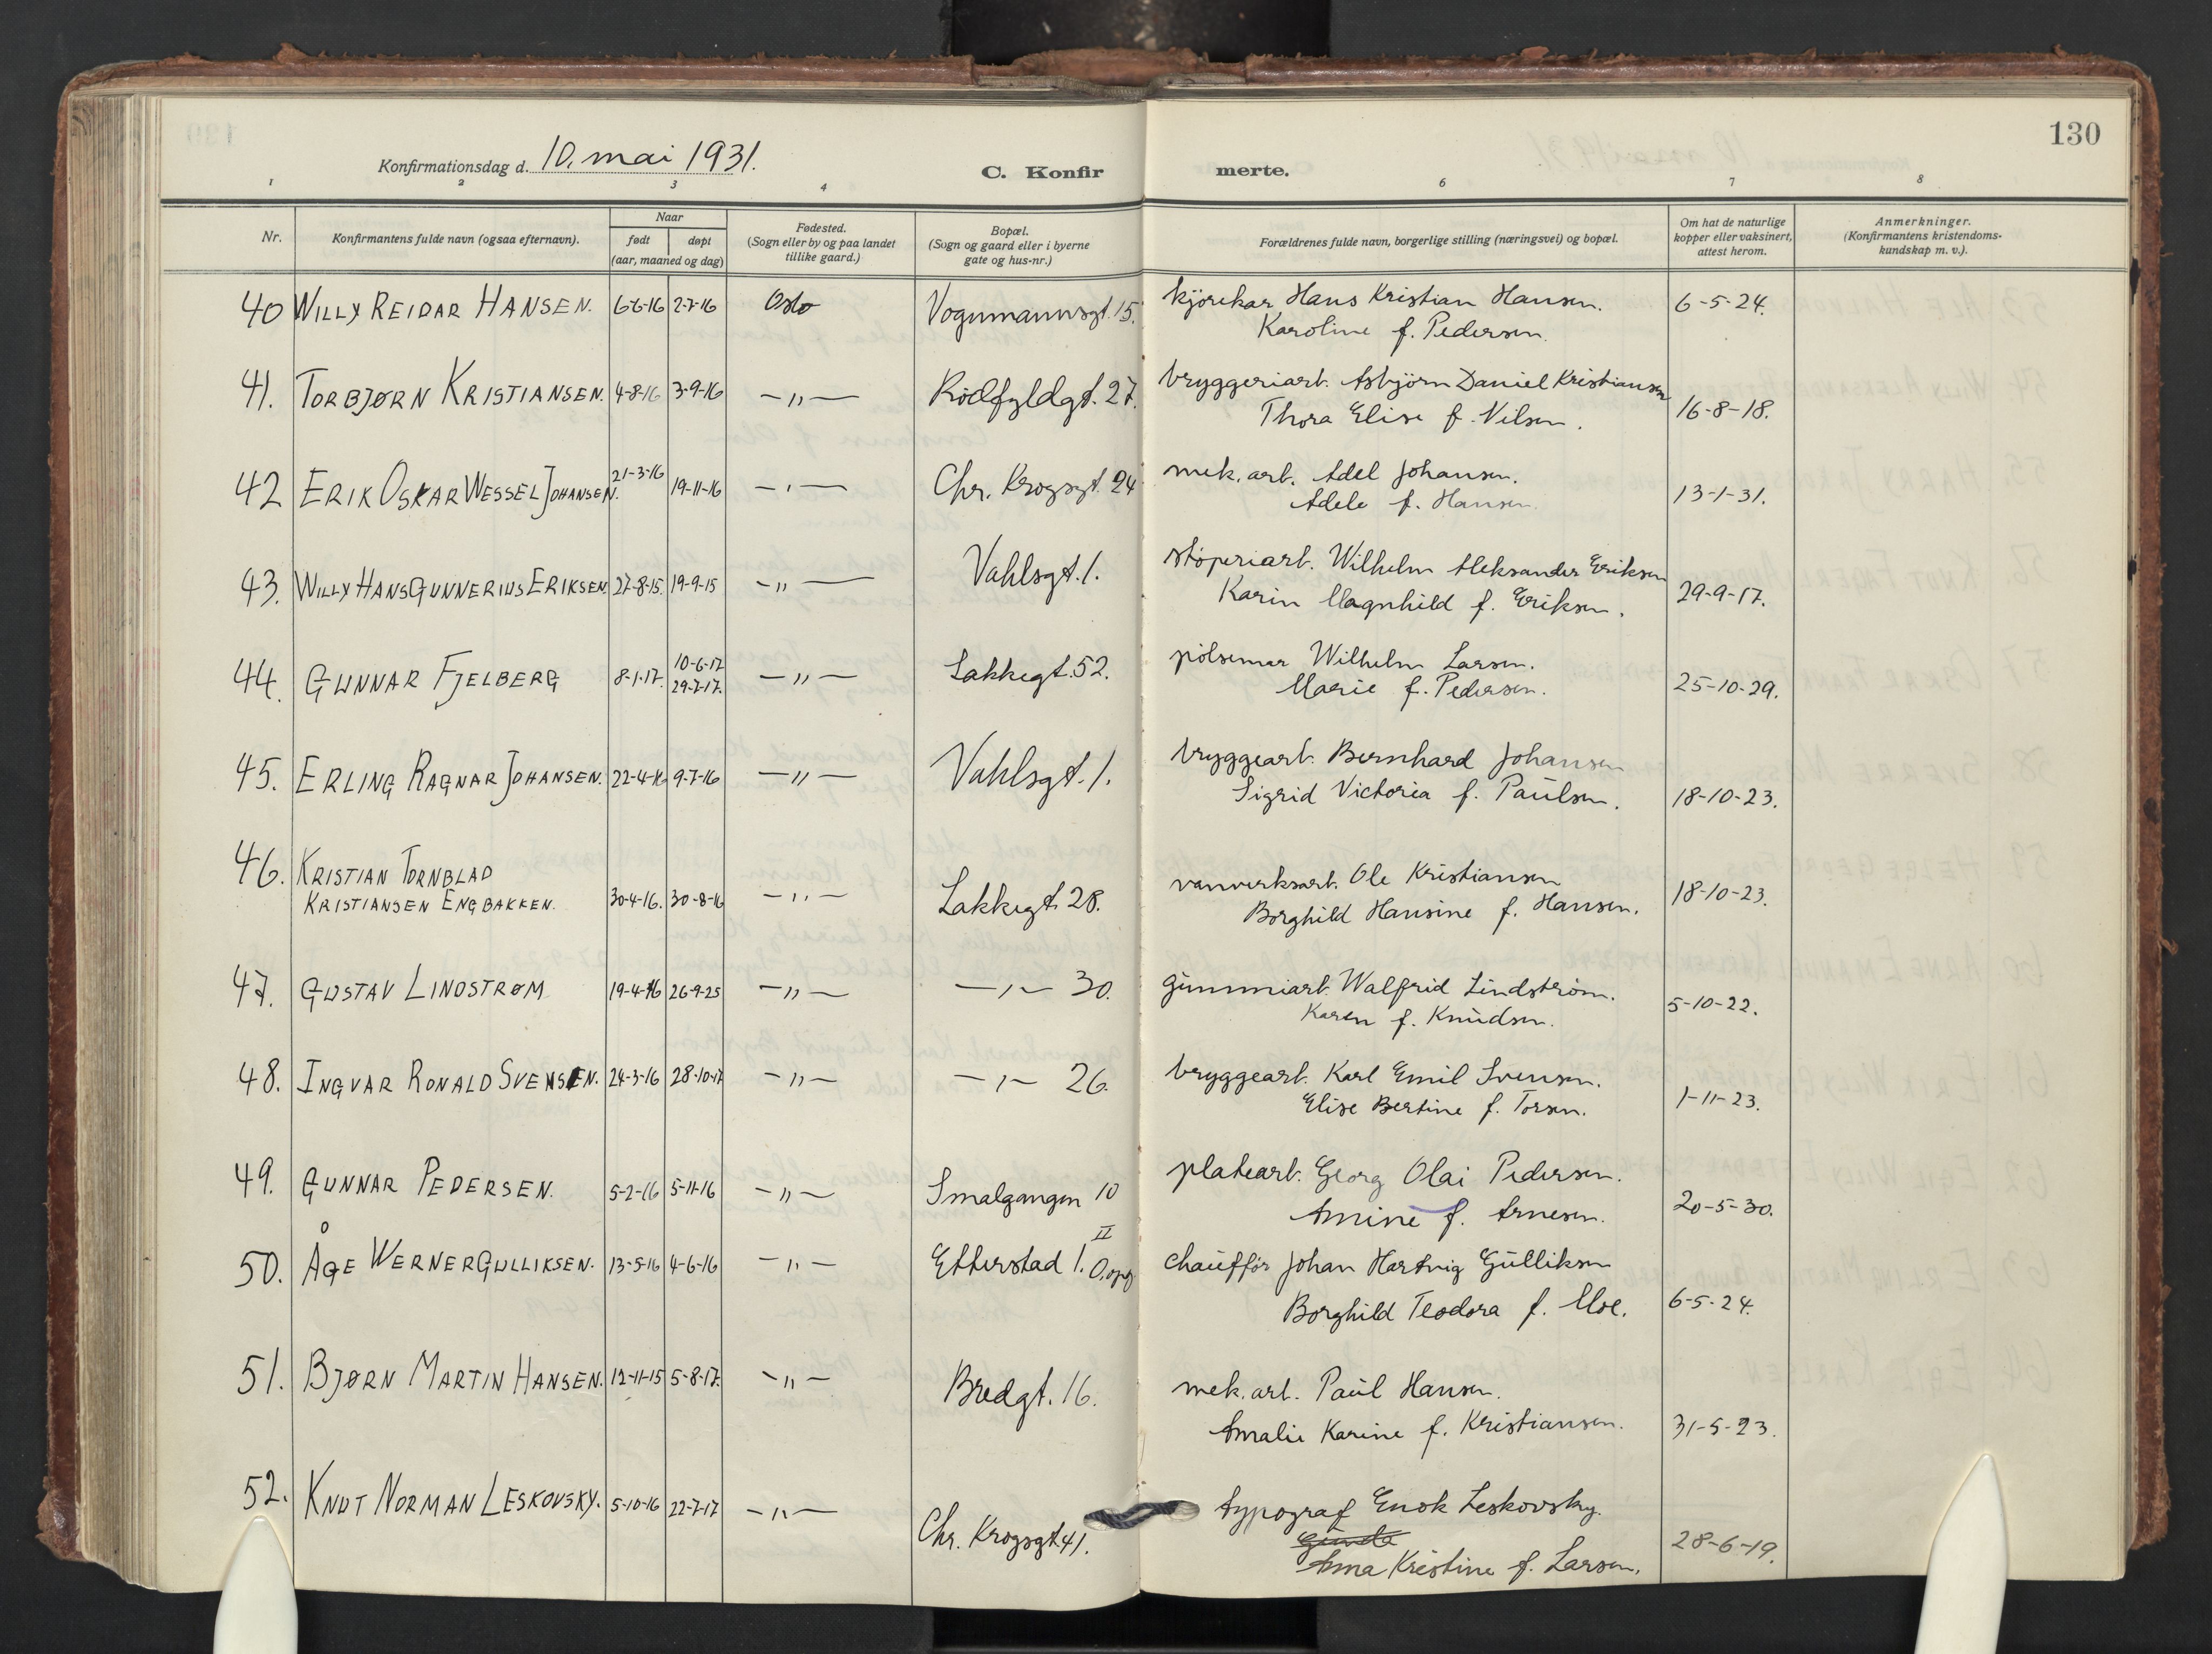 130
Konfirmationsdag d. 10. mai 1931.
C. Konfirmerte.
1 2 3 4 6 7 8
Nr.
Konfirmantens fulde navn (ogsaa efternavn).
Naar
født døpt
(aar, maaned og dag)
Fødested.
(Sogn eller by og paa landet
tillike gaard.)
Bopæl.
(Sogn og gaard eller i byerne
gate og hus-nr.)
Forældrenes fulde navn, borgerlige stilling (næringsvei) og bopæl.
Om hat de naturlige
kopper eller vaksinert,
attest herom.
Anmerkninger.
(Konfirmantens kristendoms-
kundskap m. v.).
40 WILLY REIDAR HANSEN. 6-6-16 2-7-16 Oslo Vognmannsgt. 15. kjörekar Hans Kristian Hansen. 6-5-24.
Karoline f. Pedersen.
41. TORBJØRN KRISTIANSEN. 4-8-16 3-9-16 —"— Rödfyldgt. 27. bryggeriarb. Asbjörn Daniel Kristiansen
Thora Elise f. Nilsen. 16-8-18.
42 ERIK OSKAR WESSEL JOHANSEN. 21-3-16 19-11-16 —"— Chr. Krogsgt. 24 mek. arb. Adel Johansen.
Adele f. Hansen. 13-1-31.
43. WILLY HANS GUNNERIUS ERIKSEN. 27-8-15. 19-9-15 —"— Vahlsgt. 1. stöperiarb. Wilhelm Aleksander Eriksen
Karin Magnhild f. Eriksen. 29-9-17.
44. GUNNAR FJELBERG 8-1-17. 10-6-17 —"— Lakkegt. 52. pölsemar Wilhelm Larsen.
29-7-17. Marie f. Pedersen. 25-10-29.
45. ERLING RAGNAR JOHANSEN. 22-4-16 9-7-16 —"— Vahlsgt. 1. bryggearb. Bernhard Johansen
Sigrid Victoria f. Paulsen. 18-10-23.
46. KRISTIAN TORNBLAD
KRISTIANSEN ENGBAKKEN. 30-4-16. 30-8-16 —"— Lakkegt. 28. vanverksarb. Ole Kristiansen 18-10-23.
Borghild Hansine f. Hansen.
47. GUSTAV LINDSTRØM 19-4-16 26-9-25 —"— —"— 30. gummiarb. Walfrid Lindström. 5-10-22.
Karen f. Knudsen.
48. INGVAR RONALD SVENSEN. 24-3-16 28-10-17 —"— —"— 26. bryggearb. Karl Emil Svensen.
Elise Bertine f. Torsen. 1-11-23.
49. GUNNAR PEDERSEN. 5-2-16 5-11-16 —"— Smalgangen 10 platearb. Georg Olai Pedersen.
Amine f. Arnesen. 20-5-30.
50. ÅGE WERNER GULLIKSEN. 13-5-16 4-6-16 —"— Etterstad 1. II O. opg. chaufför Johan Hartvig Gulliksen
Borghild Teodora f. Moe. 6-5-24.
51. BJØRN MARTIN HANSEN. 12-11-15 5-8-17. —"— Bredgt. 16. mek. arb. Paul Hansen.
Amalie Karine f. Kristiansen. 31-5-23.
52. KNUT NORMAN LESKOVSKY. 5-10-16 22-7-17 —"— Chr. Krogsgt. 41. typograf Enok Leskovsky.
Anna Kristine f. Larsen. 28-6-19.